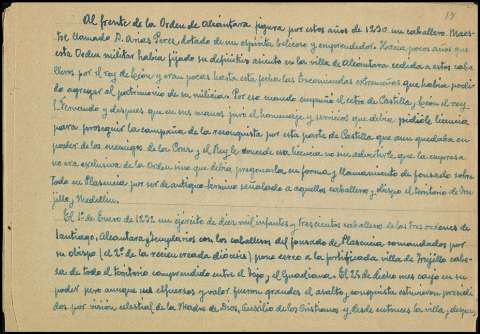 14
Al frente de la Orden de Alcántara figura por estos años de 1230 un caballero Maes-
tre llamado D. Arias Perez, dotado de un espíritu belicoso y emprendedor. Hacia pocos años que
esta Orden militar había fijado su definitivo asiento en la villa de Alcántara cedida a estos caba-
lleros por el rey de León y eran pocas hasta esta fecha las Encomiendas extremeñas que había podi-
do agregar al patrimonio de su milicia. Por eso cuando empuñó el cetro de Castilla y León el rey
S. Fernando y después que en sus manos juró el homenaje y servicios que debía pidióle licencia
para proseguir la campaña de la reconquista por esta parte de Castilla que aun quedaba en
poder de los enemigos de la Cruz y el Rey le concede esa licencia no sin advertirle que la empresa
no era exclusiva de la Orden sino que debía pregonarla en forma y llamamiento de fonsado sobre
todo en Plasencia por ser de antiguo termino señalado a aquellos caballeros y obispo el territorio de Tru-
jillo y Medellin.
El 1º de Enero de 1232 un ejército de diez mil infantes y trescientos caballeros de las tres ordenes de
Santiago, Alcantara y Templarios con los caballeros del fonsado de Plasencia, comandados por
su obispo (el 2º de la recien creada diócesis) pone cerco a la fortificada villa de Trujillo cabe-
za de todo el territorio comprendido entre el Tajo y el Guadiana. El 25 de dicho mes cayó en su
poder pero aunque sus esfuerzos y valor fueron grandes el asalto y conquista estuvieron presidi-
dos por visión celestial de la Madre de Dios, Auxilio de los Cristianos y desde entonces la villa, despues,